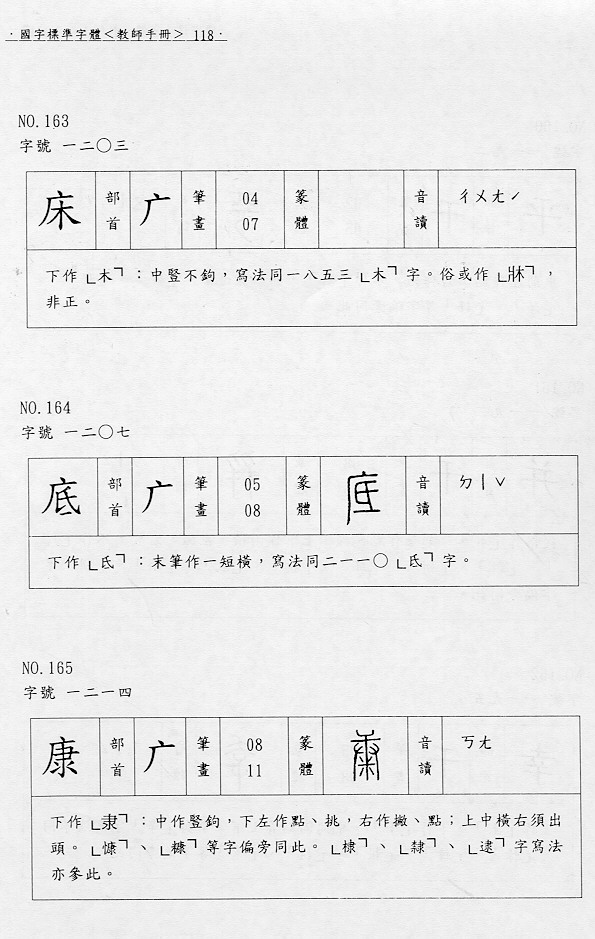 ·國字標準字體<教師手冊> 118·
NO.163
字號 一二〇三
床 部首 广 筆畫 04 07 篆體 音讀 ㄔㄨㄤˊ
下作「木」:中豎不鉤,寫法同一八五三「木」字。俗或作「牀」,
非正。
NO.164
字號 一二〇七
底 部首 广 筆畫 05 08 篆體 底 音讀 ㄉㄧˇ
下作「氐」:末筆作一短橫,寫法同二一一〇「氐」字。
NO.165
字號 一二一四
康 部首 广 筆畫 08 11 篆體 音讀 ㄎㄤ
下作「隶」:中作豎鉤,下左作點、挑,右作撇、點;上中橫右須出
頭。「慷」、「糠」等字偏旁同此。「棣」、「隸」、「逮」字寫法
亦參此。